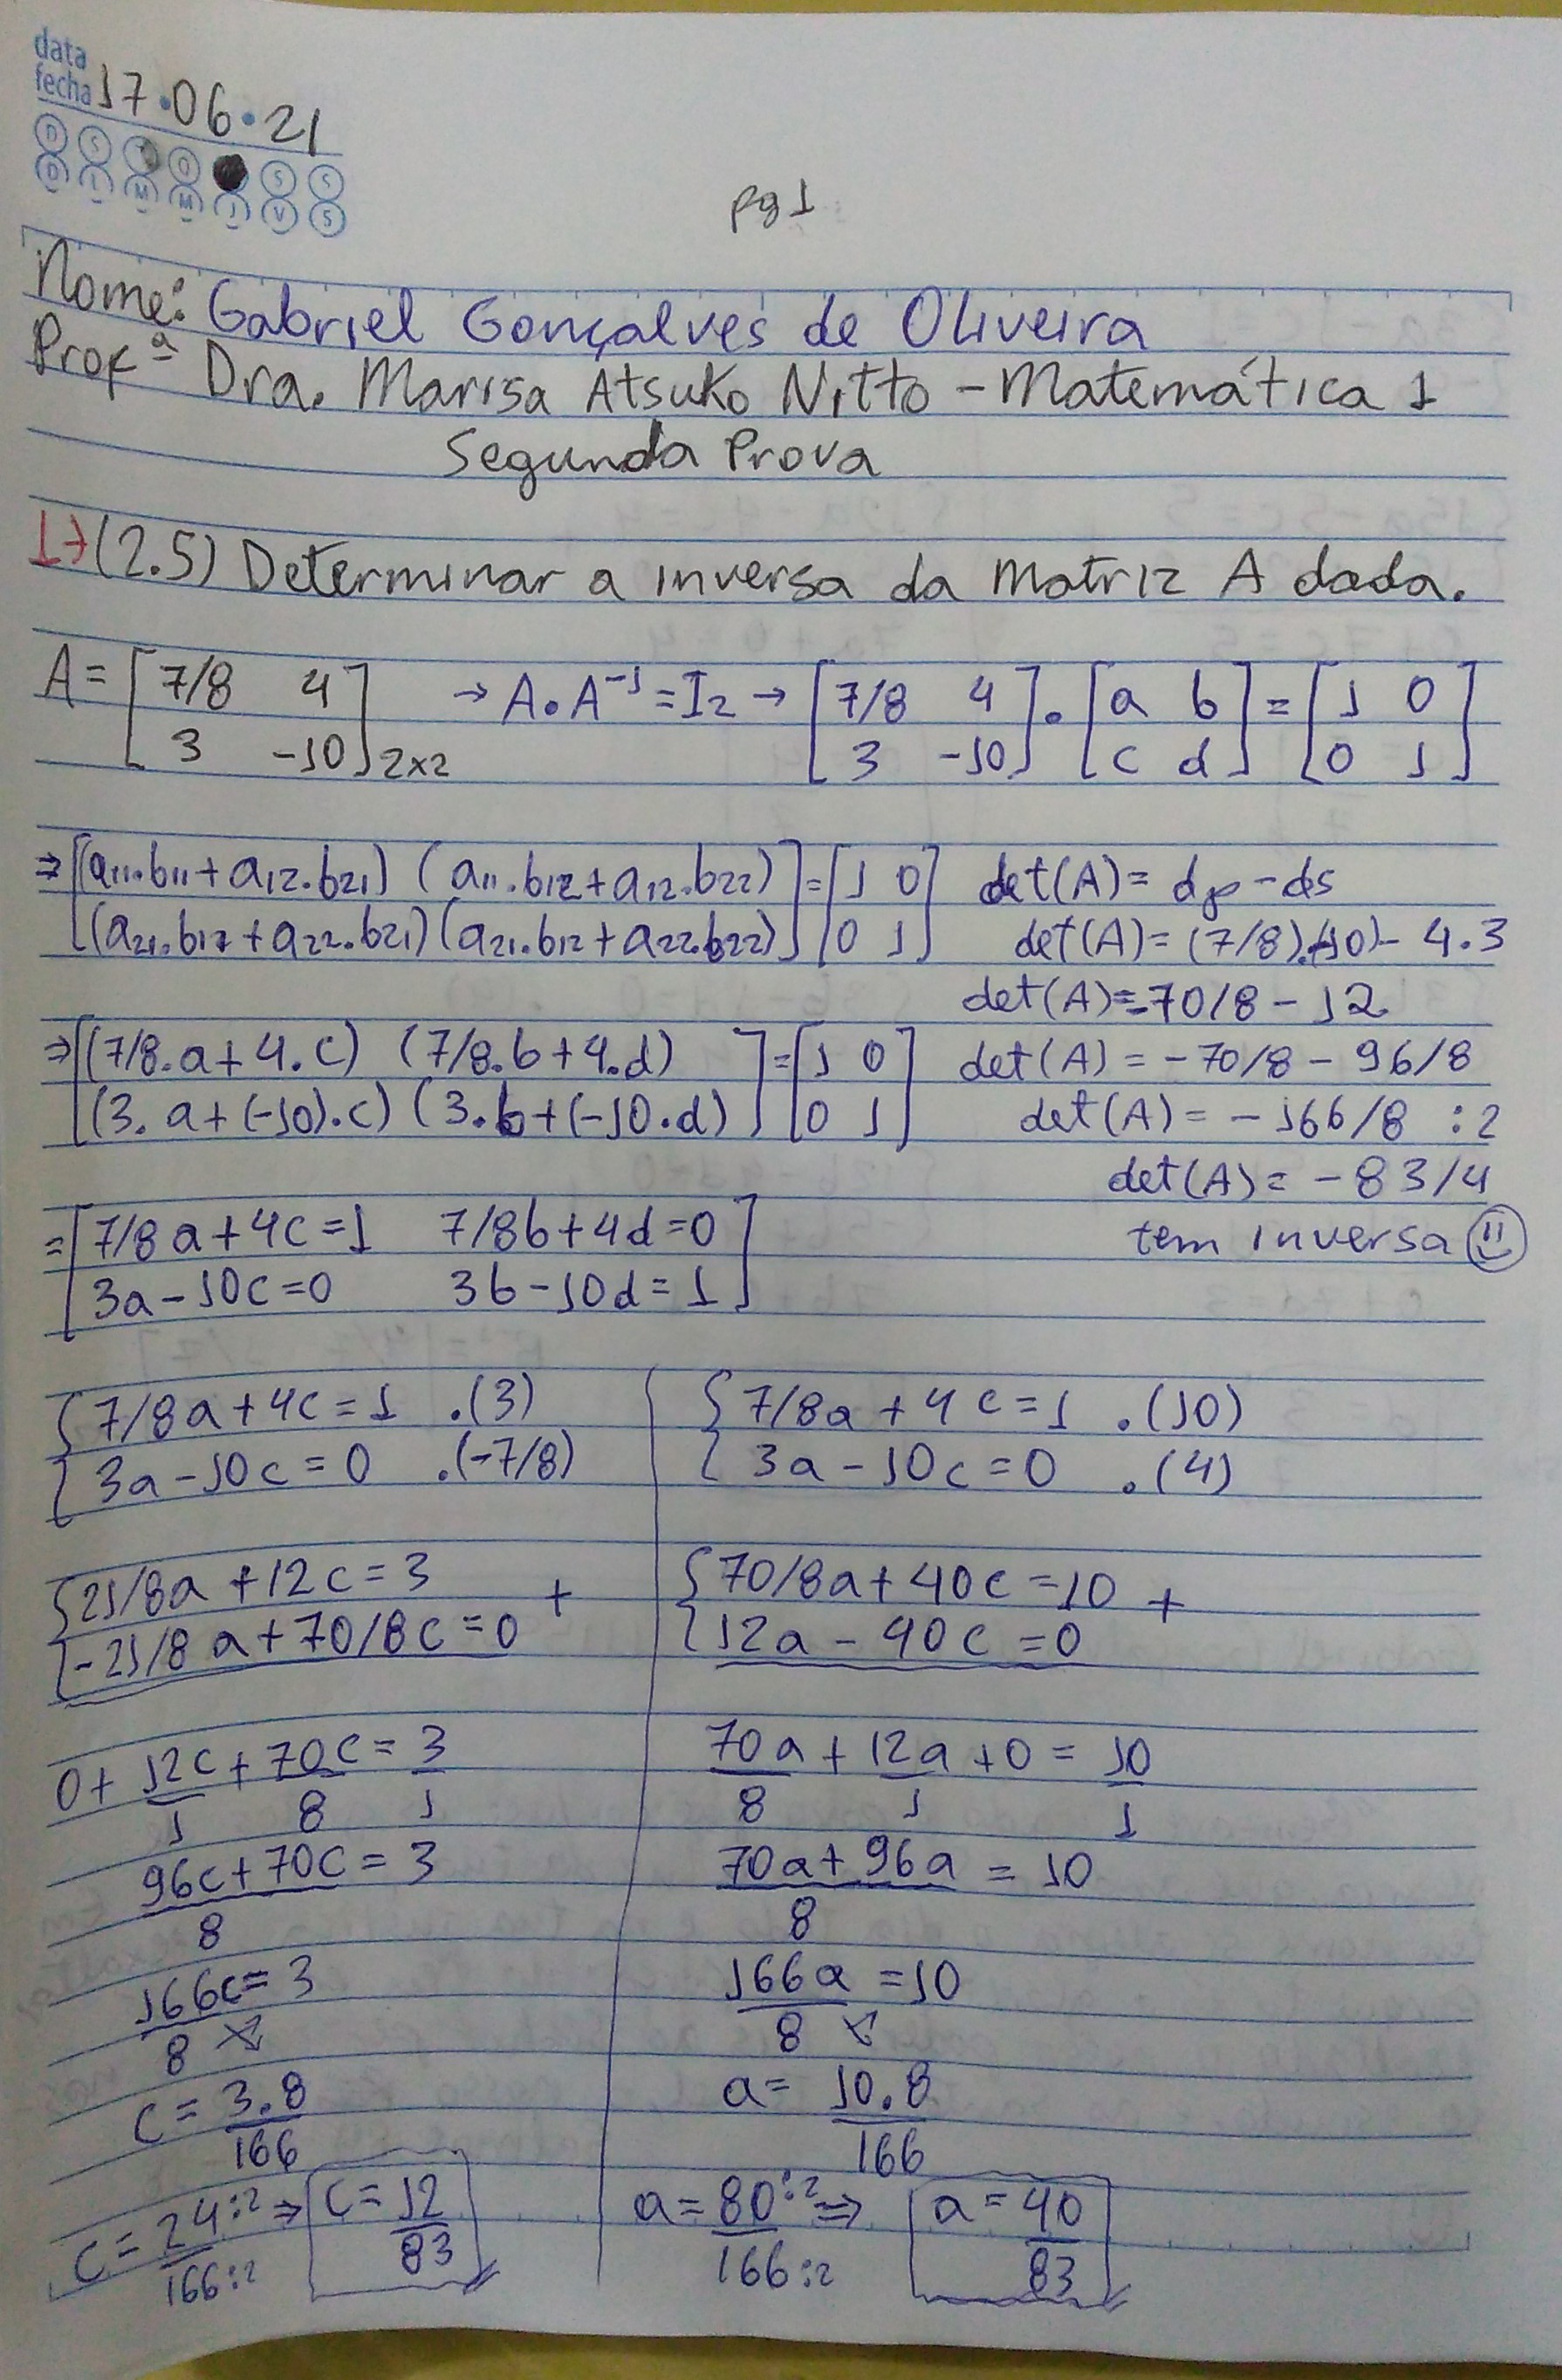 data
fecha 17.06.21
D S T Q S S
D L M M J V S
pg 1
Nome: Gabriel Gonçalves de Oliveira
Profª Dra. Marisa Atsuko Nitto - Matemática 1
Segunda Prova
1→(2.5) Determinar a inversa da matriz A dada.
A = [7/8 4
3 -10] 2x2 → A.A⁻¹ = I2 → [7/8 4
3 -10] . [a b
c d] = [1 0
0 1]
⇒ [(a11.b11+a12.b21) (a11.b12+a12.b22)
(a21.b12+a22.b21) (a21.b12+a22.b22)] = [1 0
0 1]
⇒ [(7/8.a+4.c) (7/8.b+4.d)
(3.a+(-10).c) (3.b+(-10.d)] = [1 0
0 1]
= [7/8a+4c=1 7/8b+4d=0
3a-10c=0 3b-10d=1]
det(A) = dp - ds
det(A) = (7/8).(-10) - 4.3
det(A) = -70/8 - 12
det(A) = -70/8 - 96/8
det(A) = -166/8 :2
det(A) = -83/4
tem inversa
{7/8a+4c=1 .(3)
3a-10c=0 .(-7/8)
{21/8a+12c=3
-21/8a+70/8c=0 +
0 + 12c/1 + 70c/8 = 3/1
96c+70c/8 = 3
166c/8 = 3
c = 3.8/166
c = 24:2/166:2 ⇒ c = 12/83
{7/8a+4c=1 .(10)
3a-10c=0 .(4)
{70/8a+40c=10 +
12a-40c=0
70a/8 + 12a/1 + 0 = 10/1
70a+96a/8 = 10
166a/8 = 10
a = 10.8/166
a = 80:2/166:2 ⇒ a = 40/83